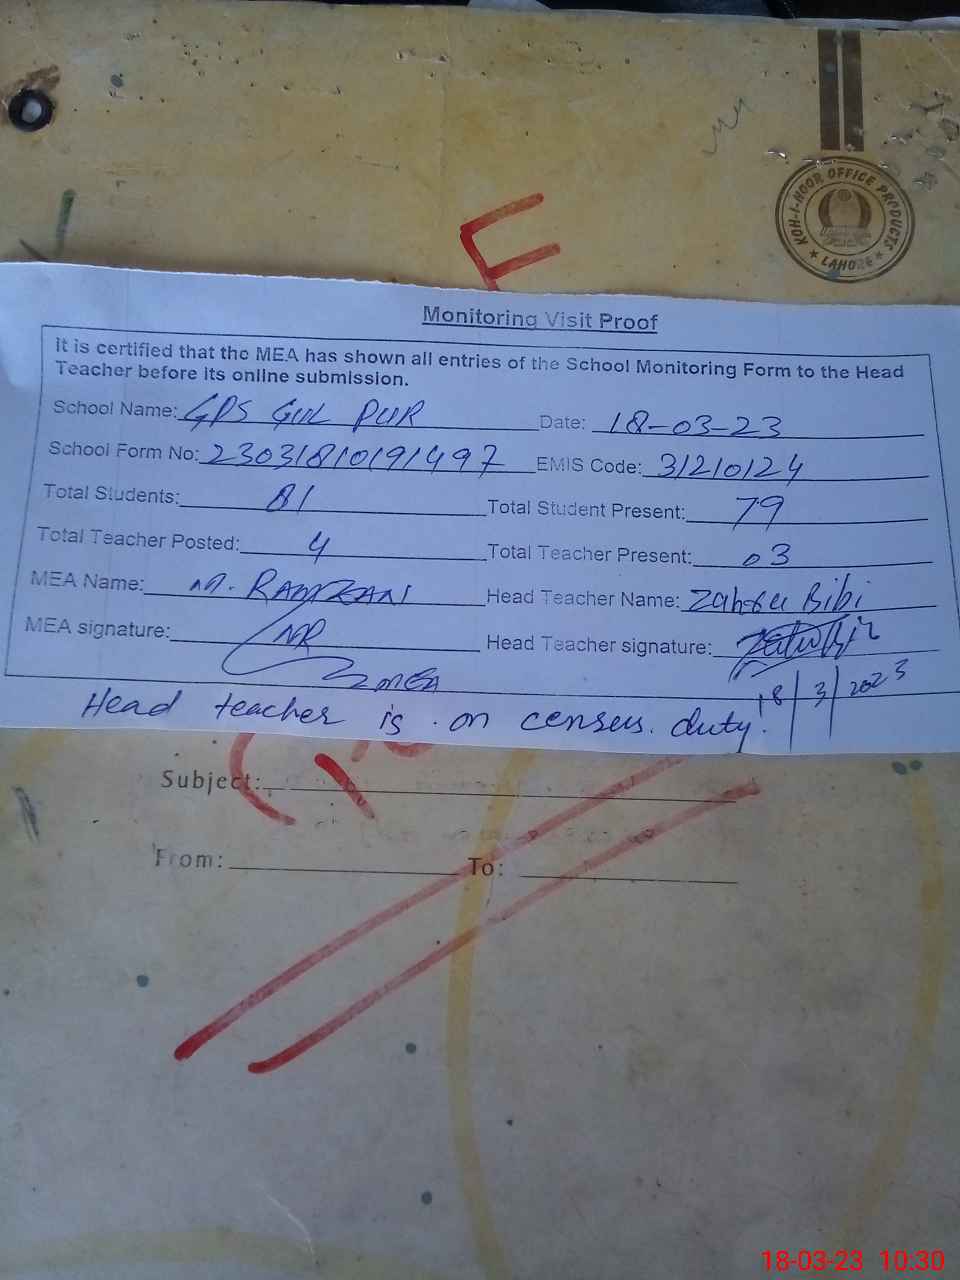 KOH-I-NOOR OFFICE PRODUCTS
★ LAHORE ★
Monitoring Visit Proof
It is certified that the MEA has shown all entries of the School Monitoring Form to the Head
Teacher before its online submission.
School Name: GPS GUL PUR Date: 18-03-23
School Form No: 23031810191497 EMIS Code: 31210124
Total Students: 81 Total Student Present: 79
Total Teacher Posted: 4 Total Teacher Present: 03
MEA Name: M. RAMZAN Head Teacher Name: Bibi
MEA signature: MR Head Teacher signature:
MEA 18/3/2023
Head teacher is on census duty!
Subject:
From: To:
18-03-23 10:30